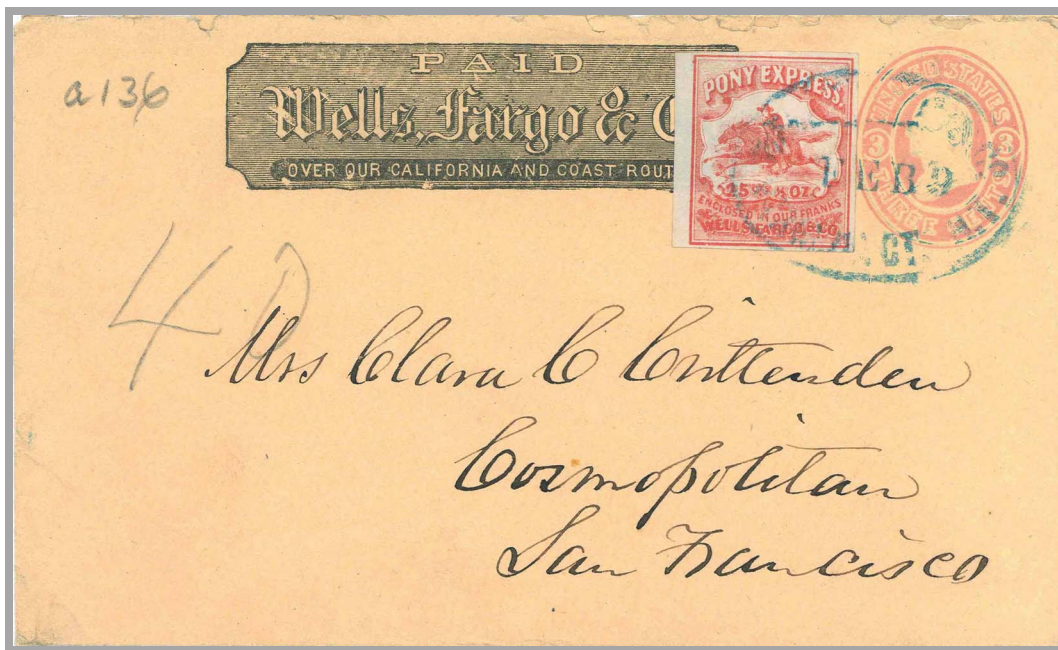 a136
PAID
Wells, Fargo & C
OVER OUR CALIFORNIA AND COAST ROUT
PONY EXPRESS.
25 ¢ ½ OZ
ENCLOSED IN OUR FRANKS
WELLS FARGO & CO.
UNITED STATES
3 3
THREE CENTS
FEB 9
40
Mrs Clara C Crittenden
Cosmopolitan
San Francisco